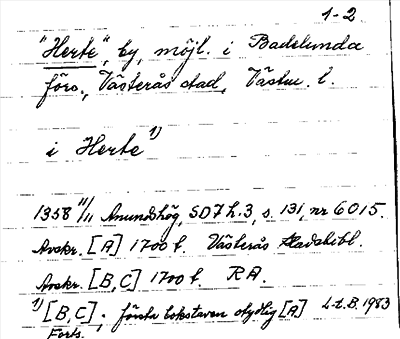 1-2
"Herte", by, möjl. i Badelunda
förs., Västerås stad, Västm. l.
i Herte 1)
1358 11/11 Anundshög, SD 7 h. 3, s. 131, nr 6015.
Avskr. [A] 1700 t. Västerås Stadsbibl.
Avskr. [B, C] 1700 t. RA.
1) [B, C]; första bokstaven otydlig [A] L.t.B. 1983
Forts.